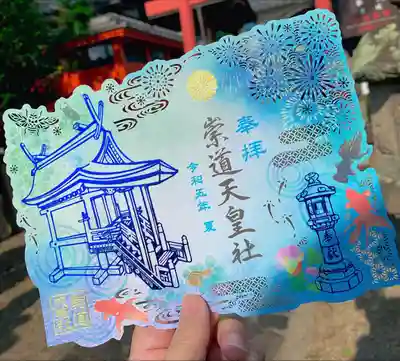 奉拝
崇道天皇社
令和五年 夏